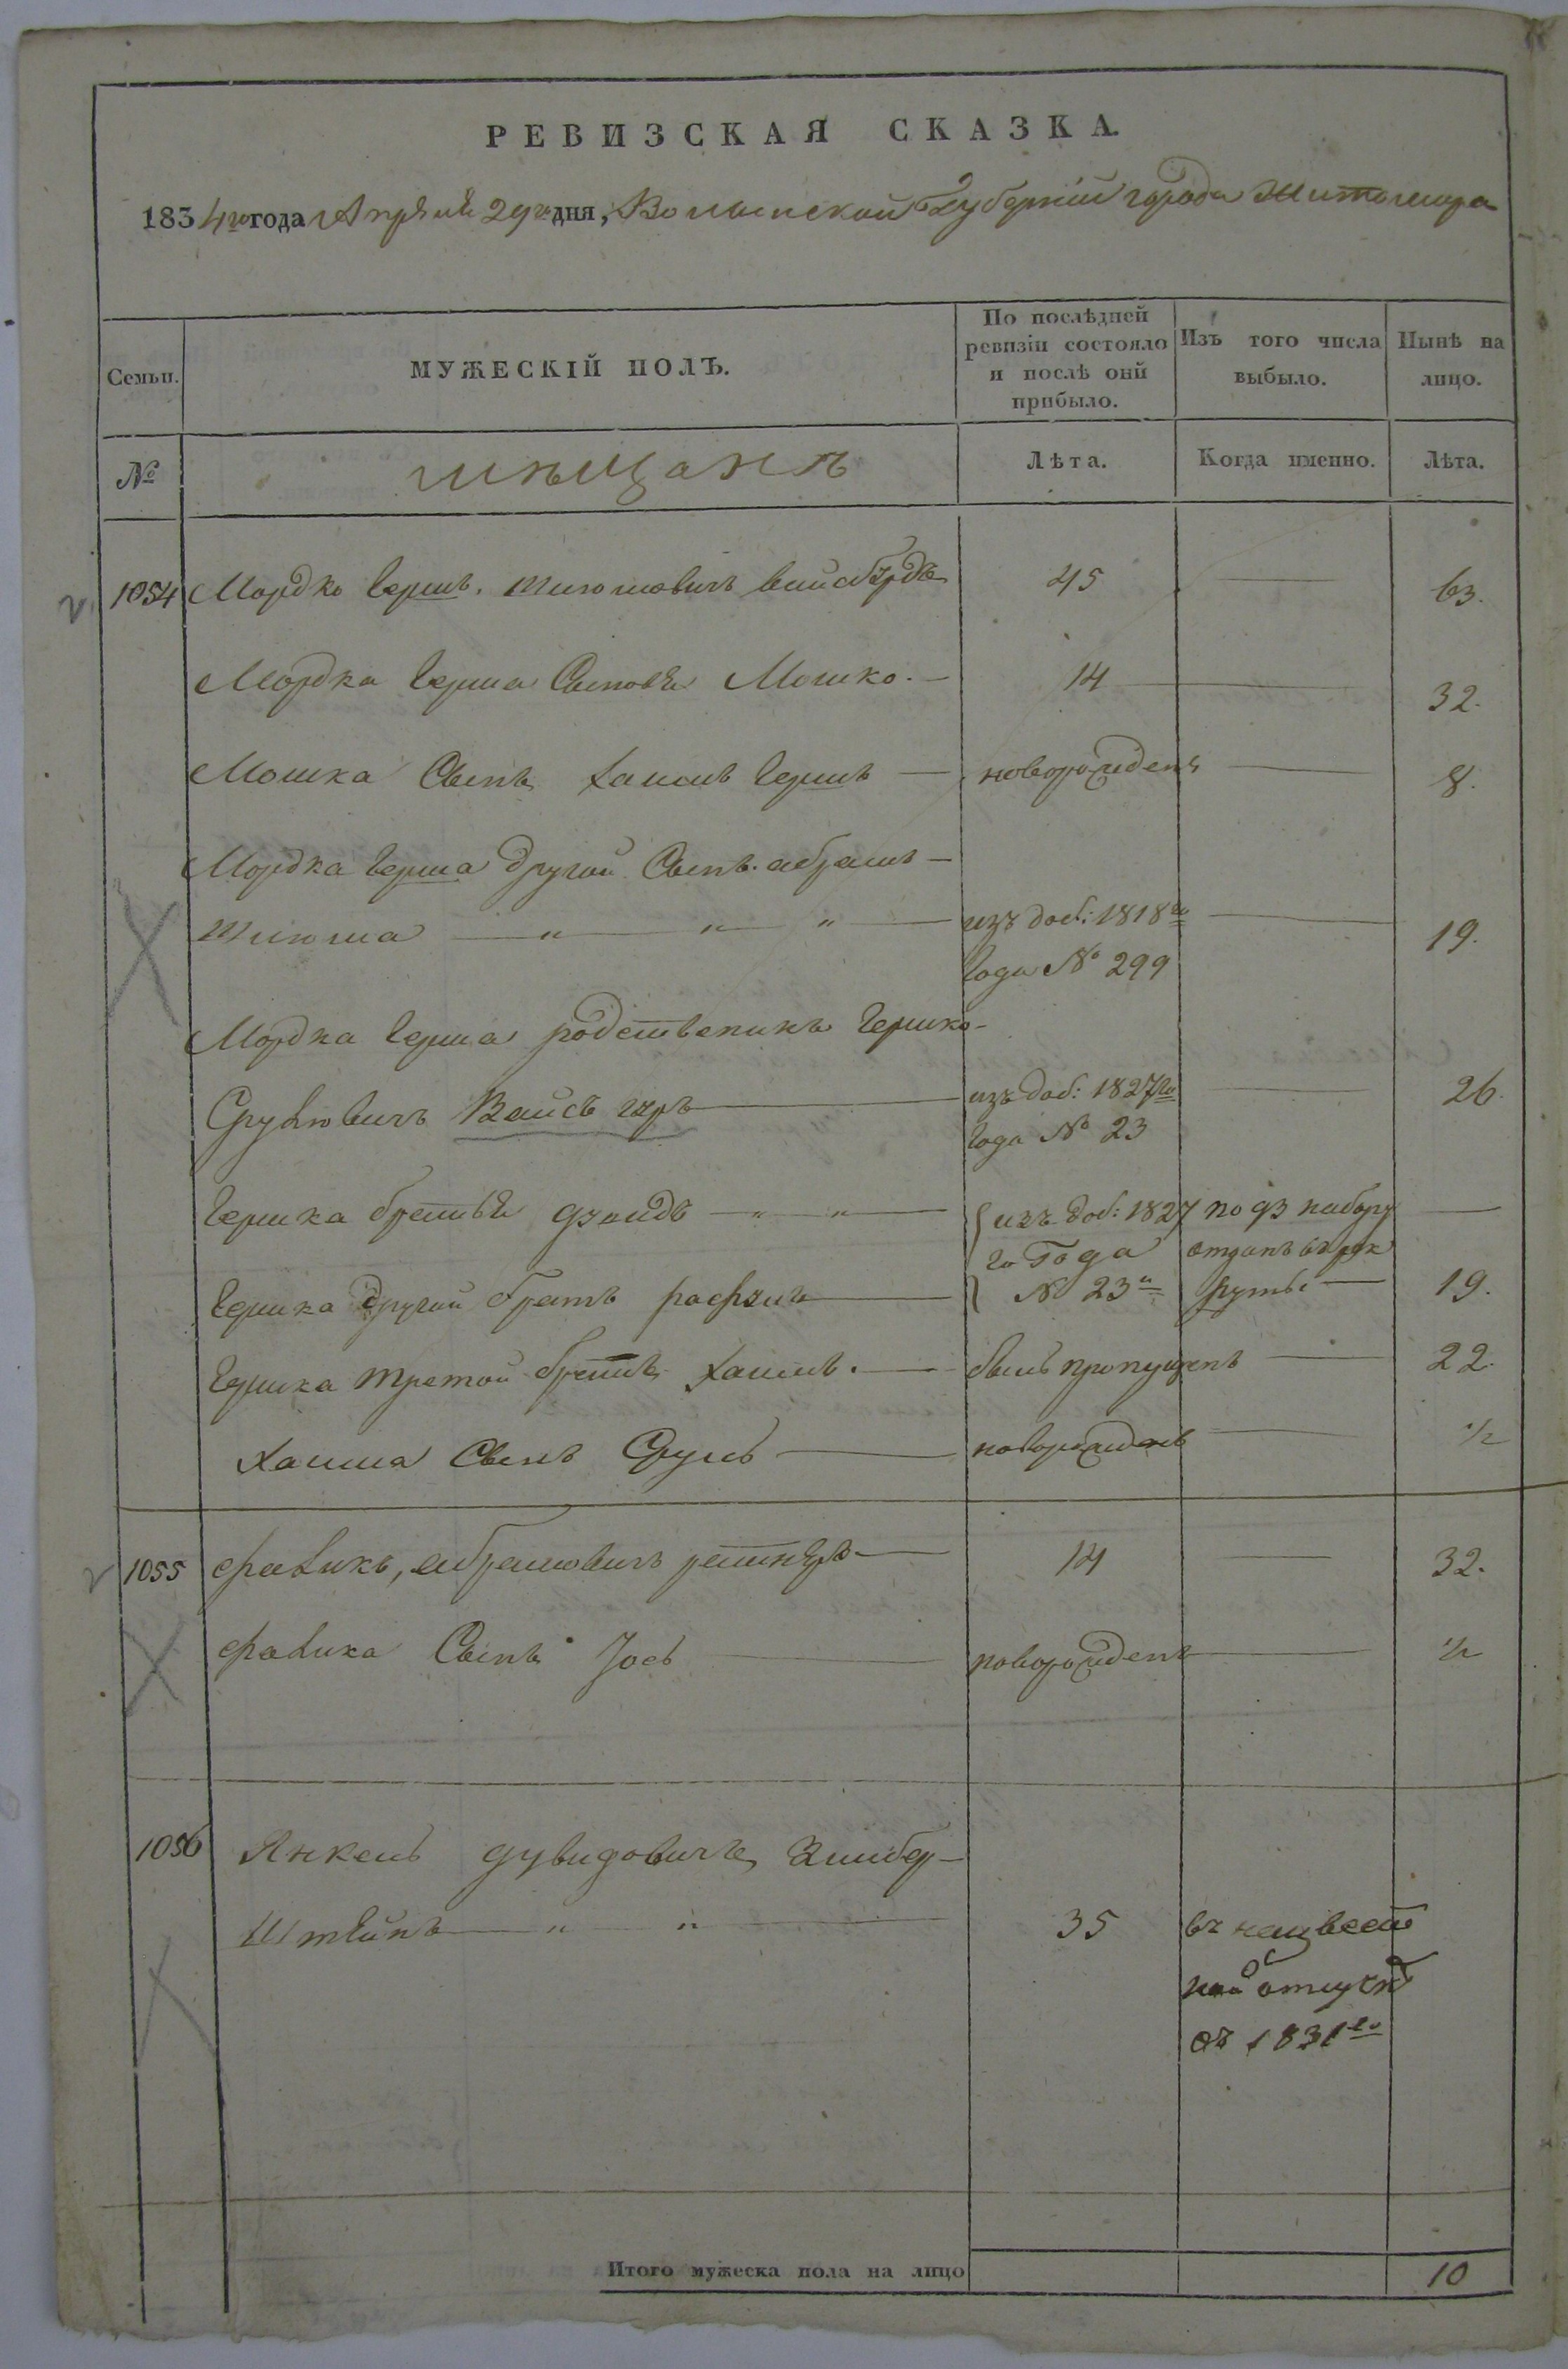 РЕВИЗСКАЯ СКАЗКА.
1834го года Апрѣля 29го дня, Волынской Губерніи города Житомира
Семьи.
МУЖЕСКІЙ ПОЛЪ.
По послѣдней ревизіи состояло и послѣ оній прибыло.
Изъ того числа выбыло.
Нынѣ на лицо.
№
мѣщанъ
Лѣта.
Когда именно.
Лѣта.
1054 Мордко Гершъ 45 63.
Мордка Герша Сыновья Мошко. 14 32.
Мошка Сынъ Хаимъ Гершъ новорожденъ 8.
Мордка Герша другой Сынъ абрамъ
изъ доб: 1818го 19.
Года № 299
Мордка Герша родственикъ Гершко
Сруловичъ изъ доб: 1827го 26.
Года № 23
Гершка братья изъ доб: 1827 по 93 набору
го Года отданъ въ рек
Гершка другой братъ № 23й руты 19.
Гершка третой братъ Хаимъ. былъ пропущенъ 22.
Хаима Сынъ Сруль новорожденъ 1/2
1055 абрамовичъ 14 32.
Сынъ Іось новорожденъ 1/2
1056 Янкель дувидовичъ Зильбер
Штейнъ 35 въ неизвест
ной отлучкѣ
съ 1831го
Итого мужеска пола на лицо 10